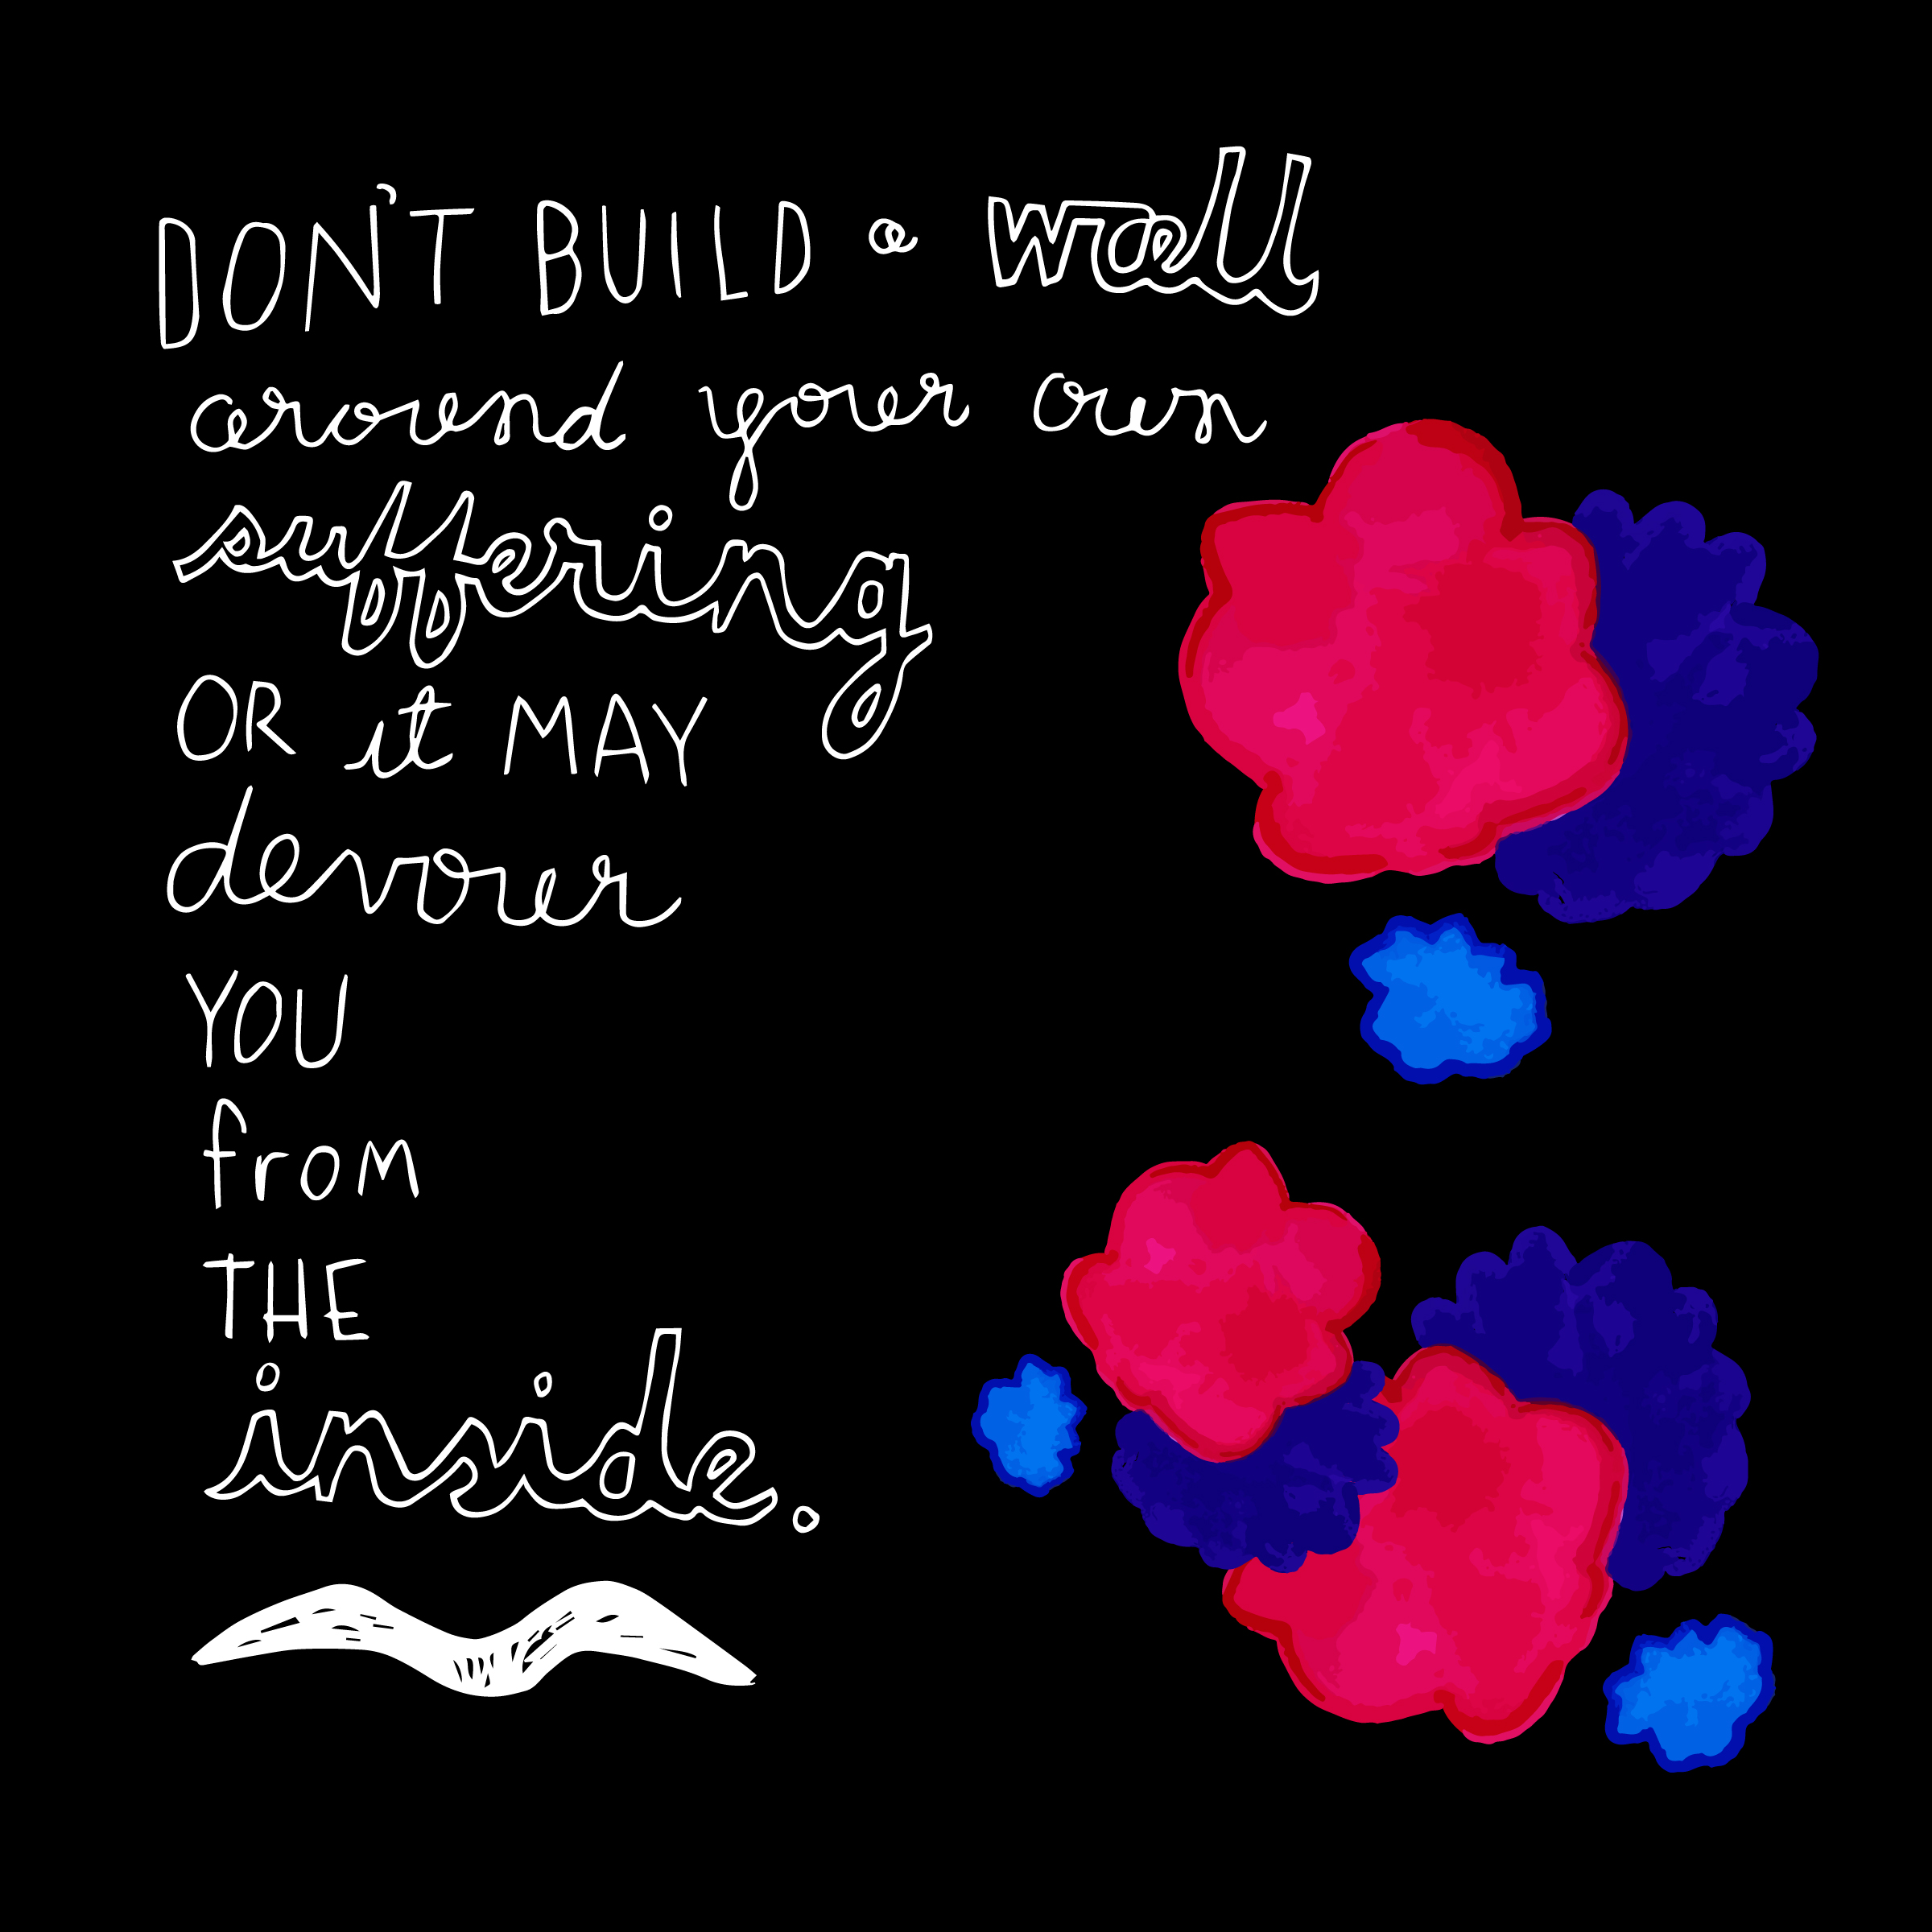 DON'T BUILD a wall
around your own
suffering
OR it MAY
devour
YOU
from
THE
inside.